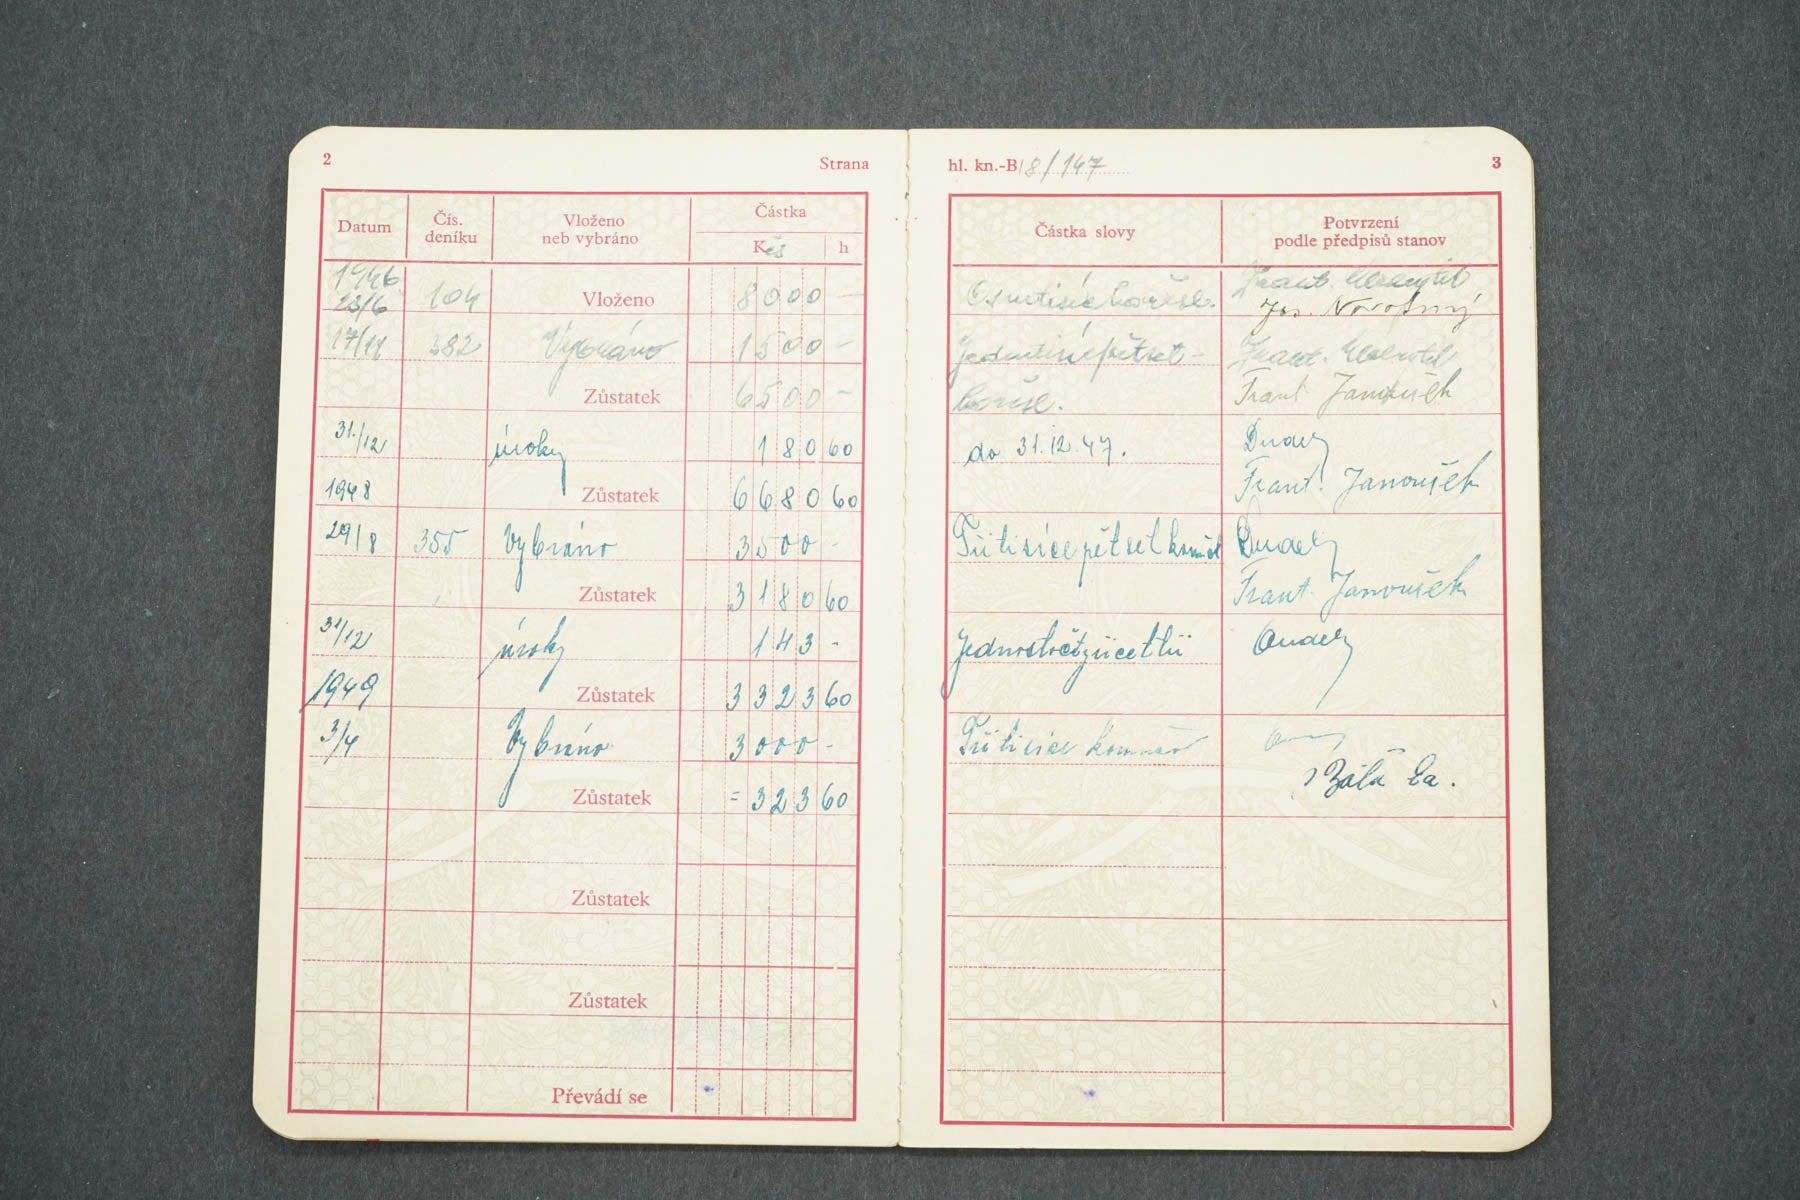 2
Strana
Datum
Čís. deníku
Vloženo neb vybráno
Částka
Kčs
h
1946
23/6 104 Vloženo 8000 —
17/11 382 Vybráno 1500 —
Zůstatek 6500 —
31./12 úroky 180 60
1948 Zůstatek 6680 60
29/8 355 Vybráno 3500 -
Zůstatek 3180 60
31/12 úroky 143 -
1949 Zůstatek 3323 60
3/4 Vybráno 3000 -
Zůstatek = 323 60
Zůstatek
Zůstatek
Převádí se
hl. kn.-B 8/147
3
Částka slovy
Potvrzení
podle předpisů stanov
Osmtisíc korčsl. Frant.
Jos. Novotný
Jedentisícpětset- Frant.
korčsl. Frant. Janoušek
do 31.12.47.
Frant. Janoušek
Třitisícepětset korčsl
Frant. Janoušek
Jednostočtyřicettři
Třitisíce korun
Bílá